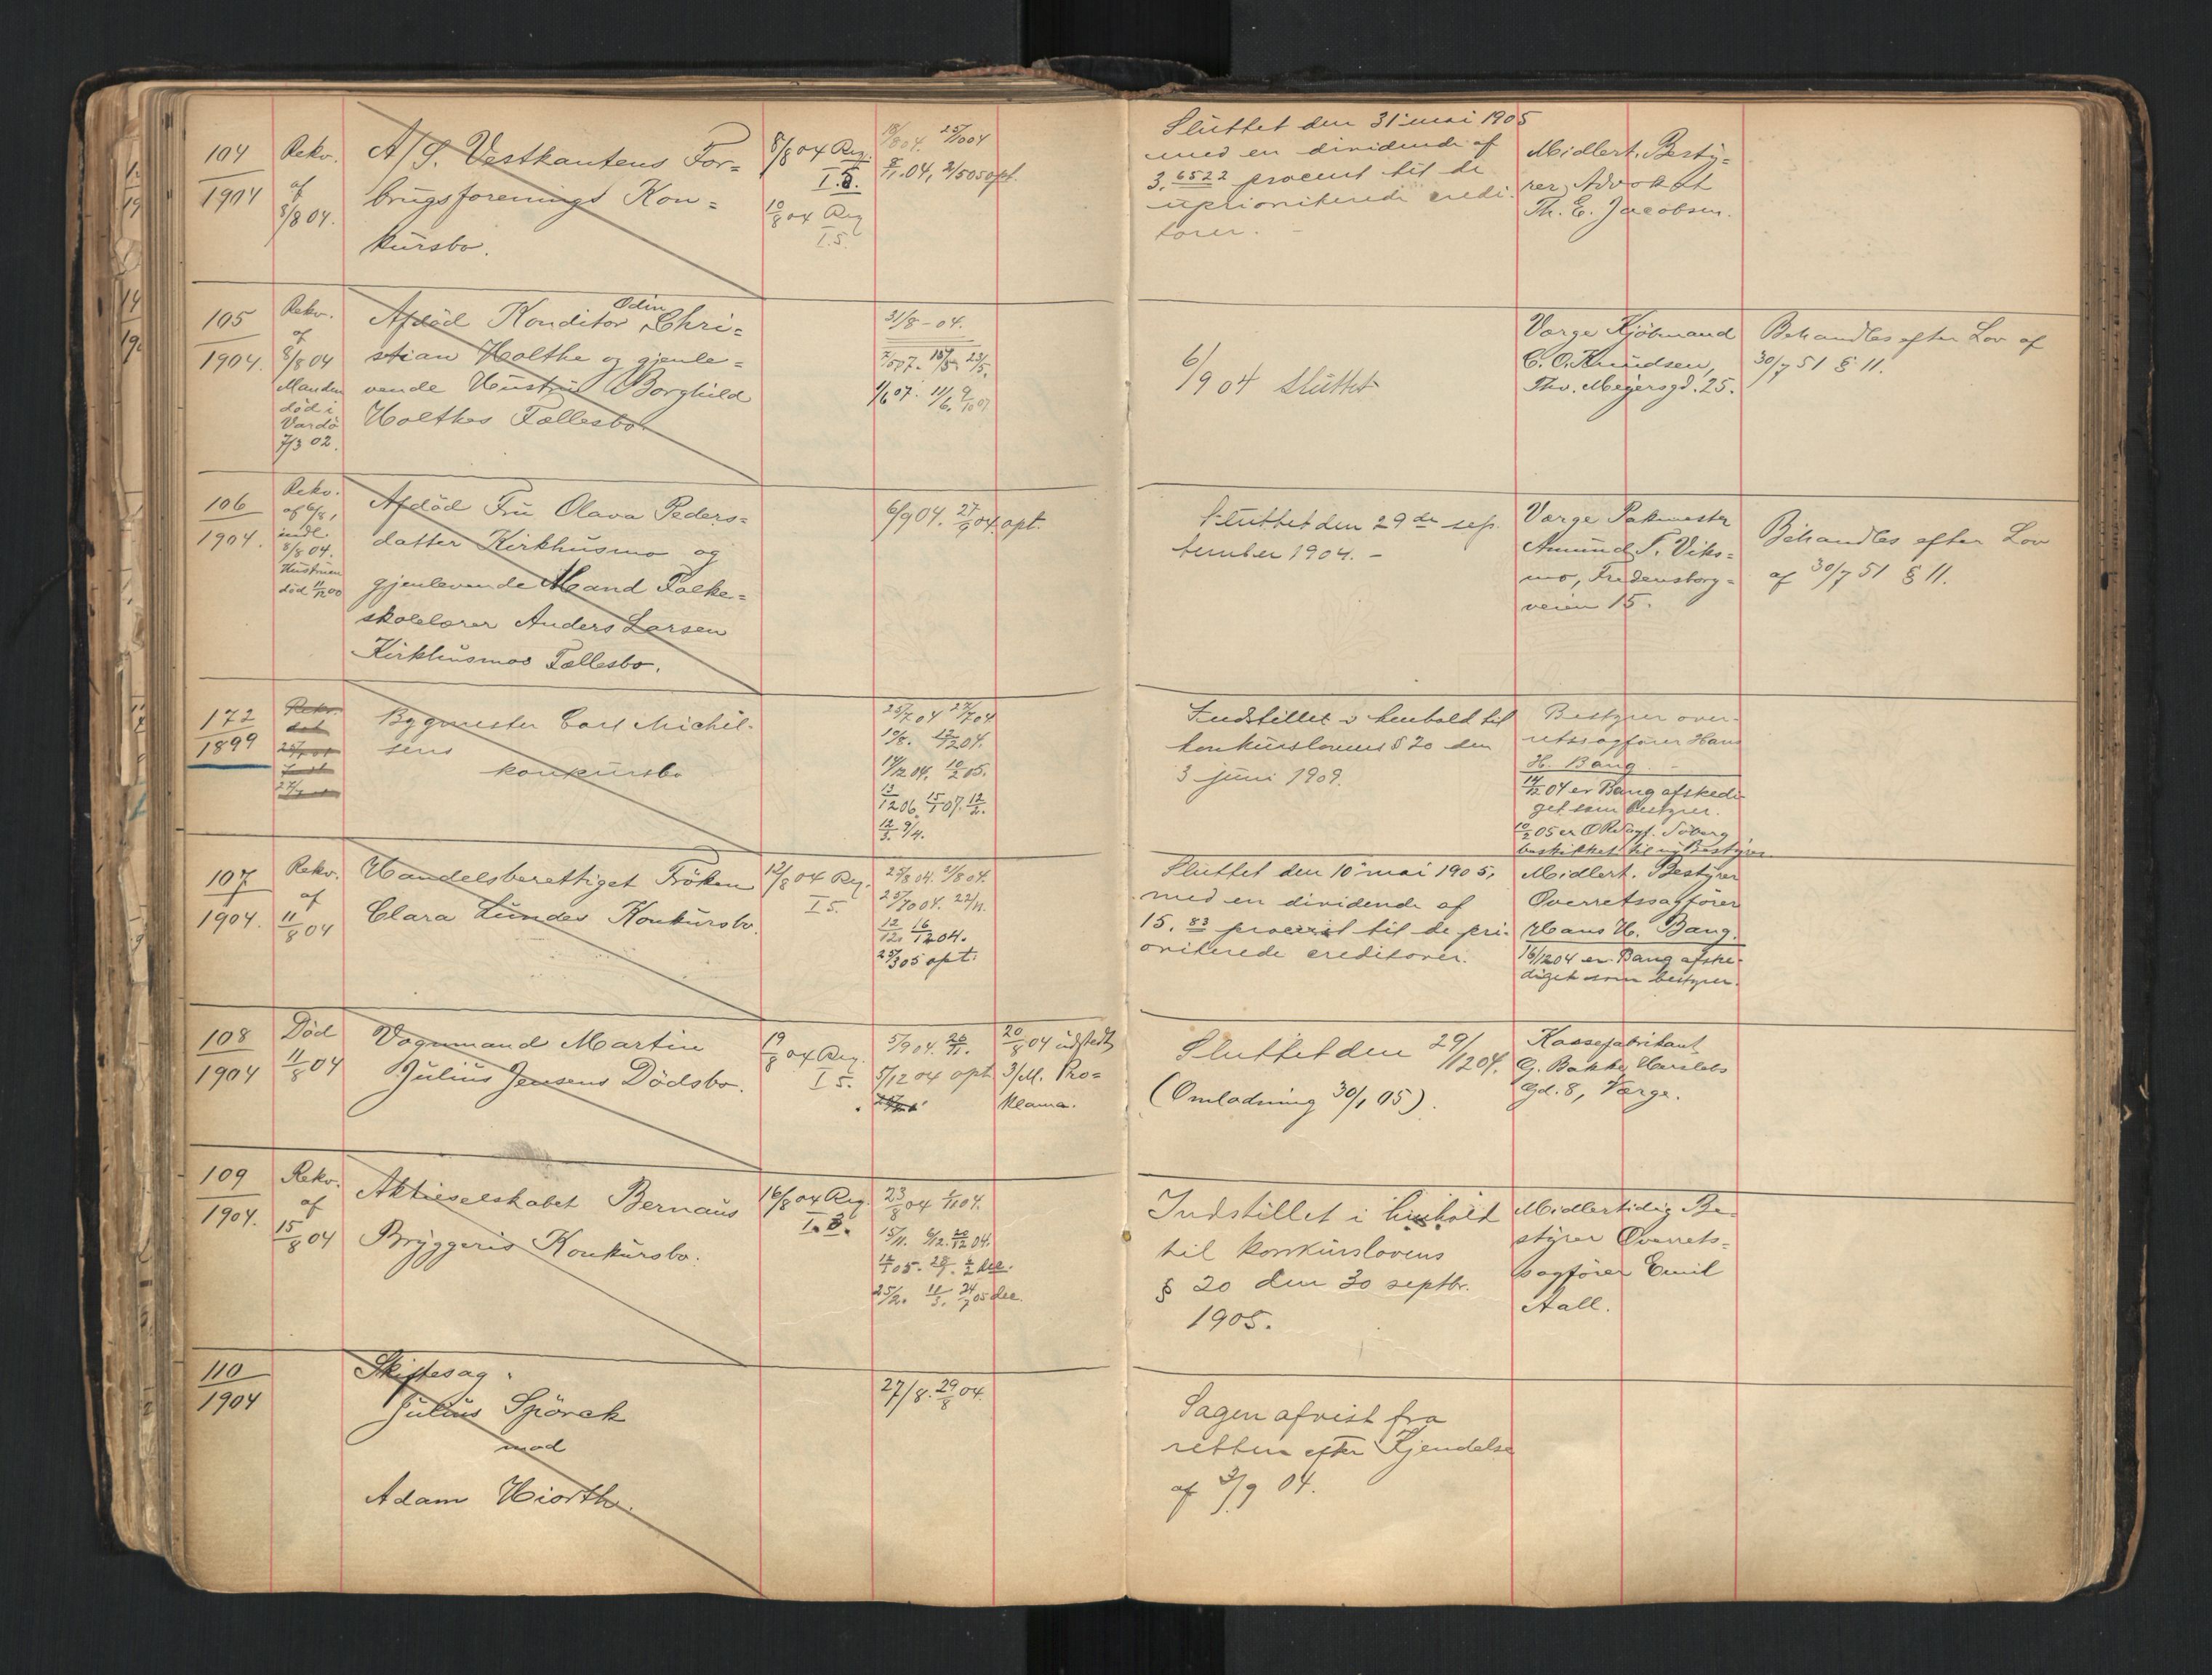 104
1904
Rekv.
af
8/8 04.
A/S. Vestkantens For=
brugsforenings Kon=
kursbo.
8/8 04 Reg.
I.8.
10/8 04 Reg
I.5.
18/8 04. 25/10 04
8/11.04, 2/5 05 opt.
Sluttet den 31 mai 1905
med en dividende af
3,6522 procent til de
uprioriterede credi-
torer. -
Midlert. Besty=
rer Advokat
Th. E. Jacobsen.
105
1904.
Rekv.
af
8/8 04
Manden
död i
Vardö
7/3 02.
Odin
Afdöd Konditor Chri=
stian Holthe og gjenle=
vende Hustru Borghild
Holthes Fællesbo.
31/8-04.
1/6 07. 11/6.
6/9 04 sluttet
Værge Kjöbmand
C. O. Knudsen,
Thv. Meyersgd. 25.
Behandles efter Lov af
30/7 51 § 11.
106
1904.
Rekv.
af 6/8,
indl.
8/8 04.
Hustruen
död 11/12 00
Afdöd Fru Olava Peders=
datter Kirkhusmo og
gjenlevende Mand Folke=
skolelærer Anders Larsen
Kirkhusmos Fællesbo.
6/9 04. 27/9 04 opt.
Sluttet den 29de sep-
tember 1904. -
Værge Pakmester
Amund T. Viks=
mo, Fredensborg=
veien 15.
Behandles efter Lov
af 30/7 51 § 11.
172
1899
Bygmester Carl Michel-
sens
konkursbo
25/7 04 27/7 04
10/8.
14/12 04. 10/2 05.
13/12 06. 15/1 07. 12/2.
12/3. 9/4.
Indstillet i henhold til
konkurslovens § 20 den
3 juni 1909.
Bestyrer over-
retssagförer Hans
H. Bang.
14/12 04 er Bang afskedi-
get som bestyrer.
10/2 05 er ORsagf. Soberg
beskikket til ny Bestyrer
107
1904.
Rekv.
af
11/8 04
Handelsberettiget Fröken
Clara Lundes Konkursbo.
12/8 04 Reg.
I 5.
25/10 04. 22/11.
12/12. 16/12 04.
25/3 05 opt.
Sluttet den 10 mai 1905,
med en dividende af
15,83 procent til de pri-
oriterede creditorer.
Midlert. Bestyrer
Overretssagförer
Hans H. Bang.
16/12 04 er Bang afske-
diget som bestyrer.
108
1904
Död
11/8 04
Vognmand Martin
Julius Jensens Dödsbo.
19/8 04 Reg.
I 5.
5/9 04. 26/11.
5/12 04 opt
20/8 04 udstedt
3/M. Pro=
klama.
Sluttet den 29/12 04.
(Omladning 30/1 05).
Kassefabrikant
G. Bakke, Herslebs
Gd. 8, Værge.
109
1904.
Rekv.
af
15/8 04
Aktieselskabet Bernaus
Bryggeris Konkursbo.
16/8 04 Reg.
I.8.
23/8 04 1/11 04.
15/11. 6/12. 20/12 04.
12/1 05. 28/1. 2/2 dec.
25/2. 11/3. 24/7 05 dec.
Indstillet i henhold
til konkurslovens
§ 20 den 30 septbr.
1905.
Midlertidig Be-
styrer Overrets=
sagförer Emil
Aall.
110
1904
Skiftesag.
Julius Spörck
mod
Adam Hiorth.
27/8. 29/8 04.
Sagen afvist fra
retten efter Kjendelse
af 3/9 04.